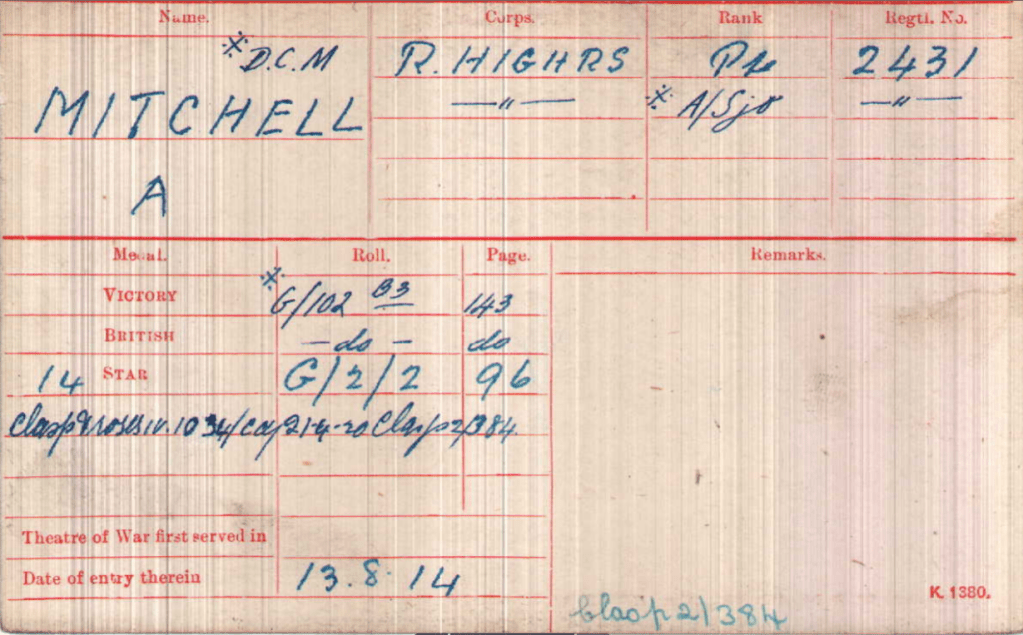 Name. Corps. Rank Regtl. No.
* D.C.M R. HIGHRS Pte 2431
MITCHELL —"— * A/Sjt —"—
A
Medal. Roll. Page. Remarks.
VICTORY * G/102 B3 143
BRITISH - do - do
14 STAR G/2/2 96
Clasp & roses iv. 1034/ 21-4-20 Clasp 2/384
Theatre of War first served in
Date of entry therein 13.8.14
K. 1380.
Clasp 2/384